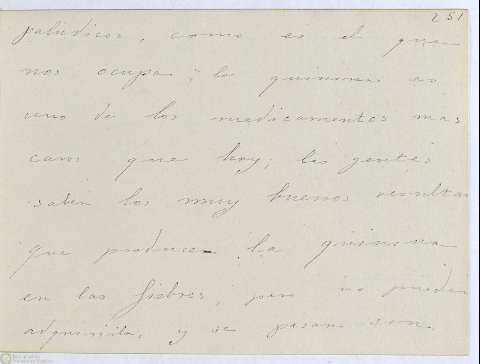 251
paludicos, como es el que
nos ocupa; la quinina es
uno de los medicamentos mas
caros que hay; las gentes
saben los muy buenos resultas
que produce la quinina
en las fiebres, pero no puedes
adquirirla, y se pasan con